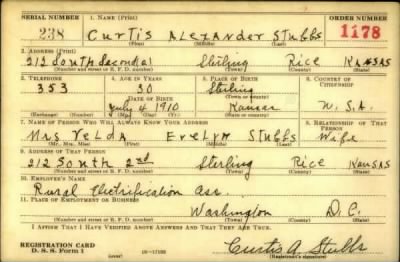 SERIAL NUMBER 1. NAME (Print) ORDER NUMBER
238 CURTIS ALEXANDER STUBBS 1178
(First) (Middle) (Last)
2. ADDRESS (Print)
212 South Second St Sterling Rice Kansas
(Number and street or R. F. D. number) (Town) (County) (State)
3. TELEPHONE 4. AGE IN YEARS 5. PLACE OF BIRTH 6. COUNTRY OF CITIZENSHIP
353 30 Sterling
DATE OF BIRTH
July 4 1910 Kansas U.S.A.
(Exchange) (Number) (Mo.) (Day) (Yr.) (State or country)
7. NAME OF PERSON WHO WILL ALWAYS KNOW YOUR ADDRESS 8. RELATIONSHIP OF THAT PERSON
Mrs Velda Evelyn Stubbs Wife
(Mr., Mrs., Miss) (First) (Middle) (Last)
9. ADDRESS OF THAT PERSON
212 South 2nd Sterling Rice Kansas
(Number and street or R. F. D. number) (Town) (County) (State)
10. EMPLOYER'S NAME
Rural Electrification Ass.
11. PLACE OF EMPLOYMENT OR BUSINESS
Washington D.C.
(Number and street or R. F. D. number) (Town) (County) (State)
I AFFIRM THAT I HAVE VERIFIED ABOVE ANSWERS AND THAT THEY ARE TRUE.
REGISTRATION CARD Curtis A Stubbs
D. S. S. Form 1 (Registrant's signature)